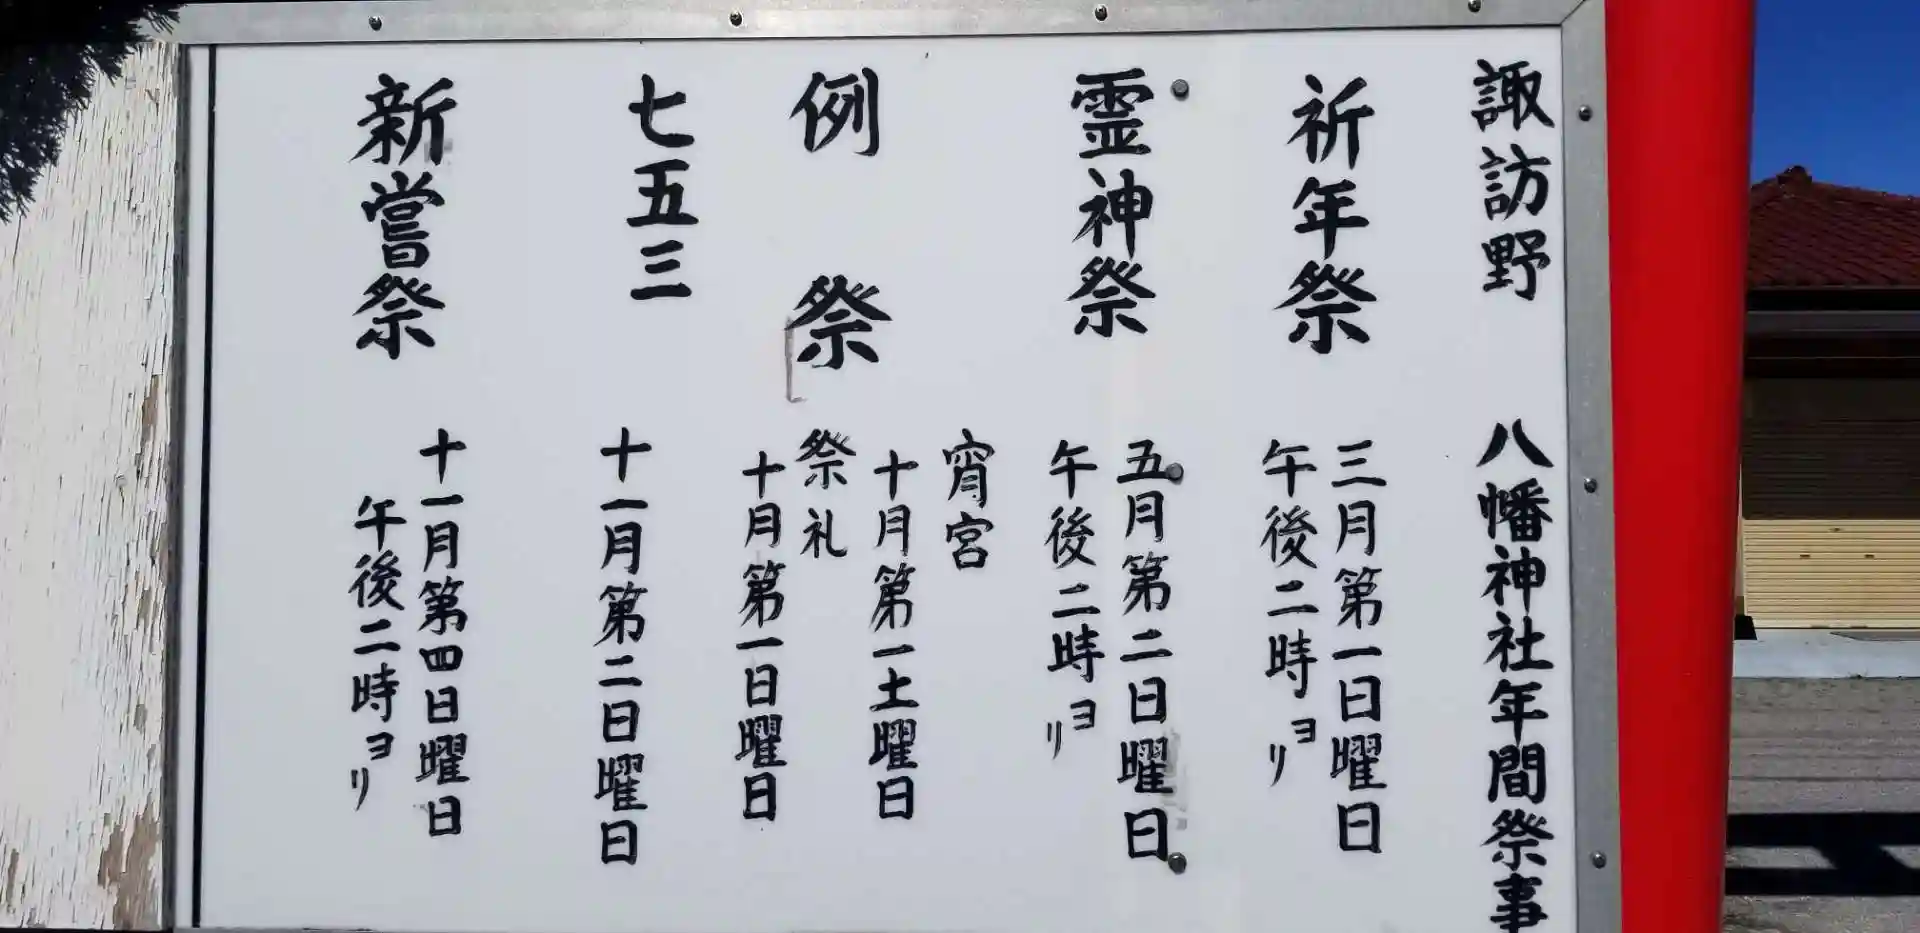 諏訪野 八幡神社年間祭事
祈年祭 三月第一日曜日
午後二時ヨリ
霊神祭 五月第二日曜日
午後二時ヨリ
例祭 宵宮
十月第一土曜日
祭礼
十月第一日曜日
七五三 十一月第二日曜日
新嘗祭 十一月第四日曜日
午後二時ヨリ